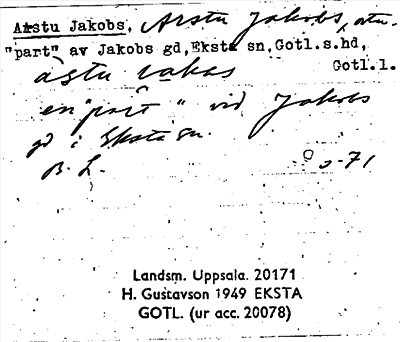 Arstu Jakobs, Arstu Jakobs,
"part" av Jakobs gd, Eksta sn, Gotl.s.hd,
Gotl.l.
en "part" vid Jakobs
gd i Eksta sn.
B. L.
Landsm. Uppsala. 20171
H. Gustavson 1949 EKSTA
GOTL. (ur acc. 20078)